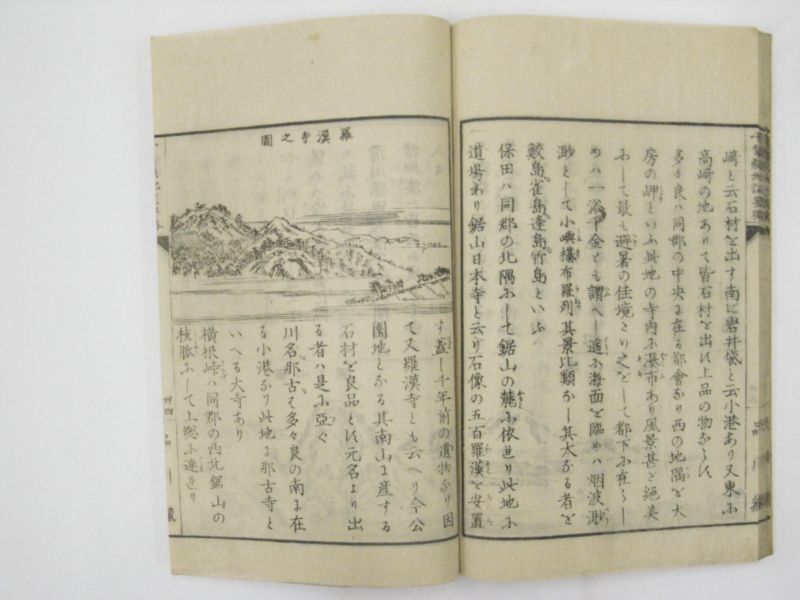 﨑と云石材を出す南に岩井袋と云小港あり又東ふ
高﨑の地ありて皆石材を出せ𪜈上品の物ならバ
多々良ハ同郡の中央に在る都會なり西の地隅を大
房の岬といふ此地の寺内ふ瀑布あり風景甚ざ絶美
ふして最も避暑の佳境とり之をして都下ふ在らし
めハ一浴千金とも謂へし遥ふ海面を臨めハ烟波渺
渺として小嶼棊布羅列其景比類なし其大なる者を
鮫島雀島逢島竹島といふ
保田ハ同郡の北隅ふして鋸山の麓ふ依せり此地ふ
道場あり鋸山日本寺と云り石像の五百羅漢を安置
羅漢寺之圖
す蓋し千年前の遺物なり因
て又羅漢寺とも云へり今公
園地とふる其南山に産する
石材を良品とす元名より出
る者ハ是ふ亞ぐ
川名那古ハ多々良の南に在
る小港なり此地に那古寺と
いへる大寺あり
横根峠ハ同郡の西北鋸山の
枝脈ふして上総ふ連せり
四